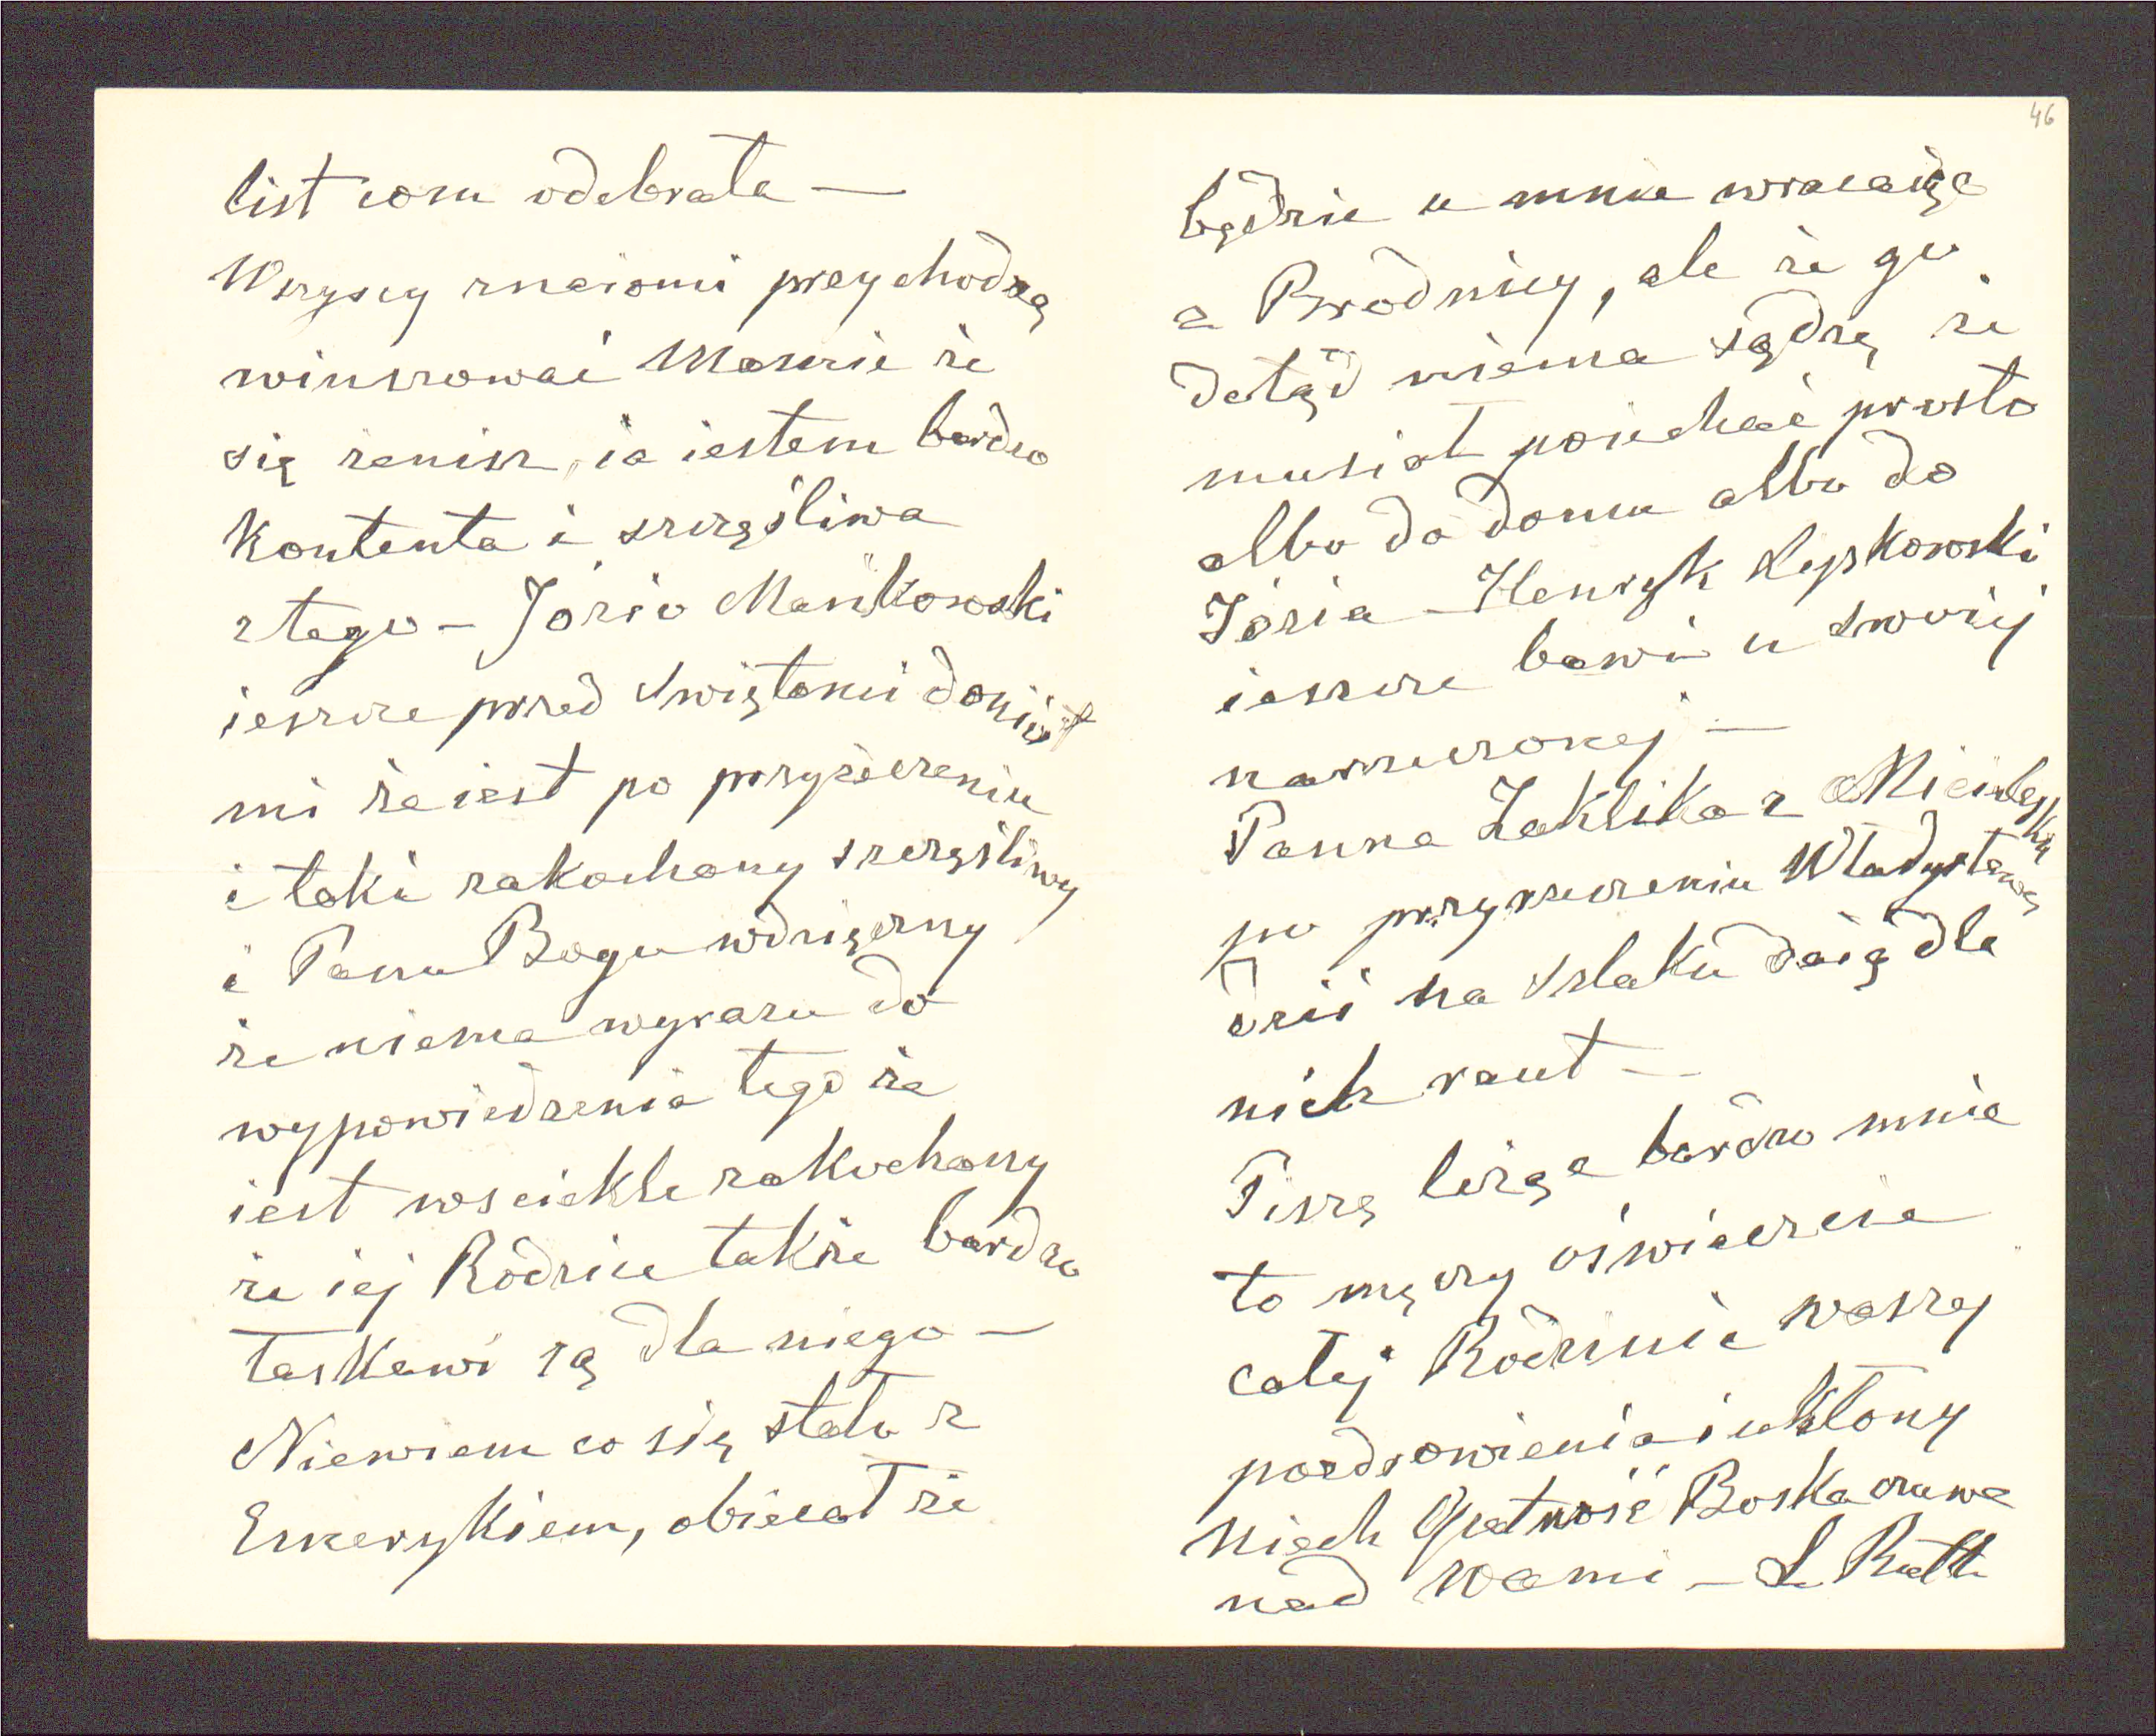 list com odebrała —
Wszyscy znaiomi przychodzą
winszować Mausie że
się żenisz, ia iestem bardzo
kontenta i szczęśliwa
z tego – Józio Mańkowski
ieszcze przed Swiętami doniósł
mi że iest po przyrzeczeniu
i taki zakochany szczęśliwy
i Panu Bogu wdzięczny
że niema wyrazu do
wypowiedzenia tego że
iest wsciekle zakochany
że iej Rodzice także bardzo
łaskawi są dla niego —
Niewiem co się stało z
Emerykiem, obiecał że
46
będzie u mnie wracaiąc
z Brodnicy, ale że go
dotąd niema sądzę że
musiał poiechać prosto
albo do domu albo do
Józia – Henryk Łepkowski
ieszcze bawi u swoiej
narzeczonej —
Panna Zaklika z
po przyrzeczeniu Władysławą
dziś na Szlaku daią dla
nich raut —
Piszę leżąc bardzo mnie
to męczy oświadczcie
całej Rodzinie waszej
pozdrowienia i ukłony
niech Opatrność Boska czuwa
nad Wami – L